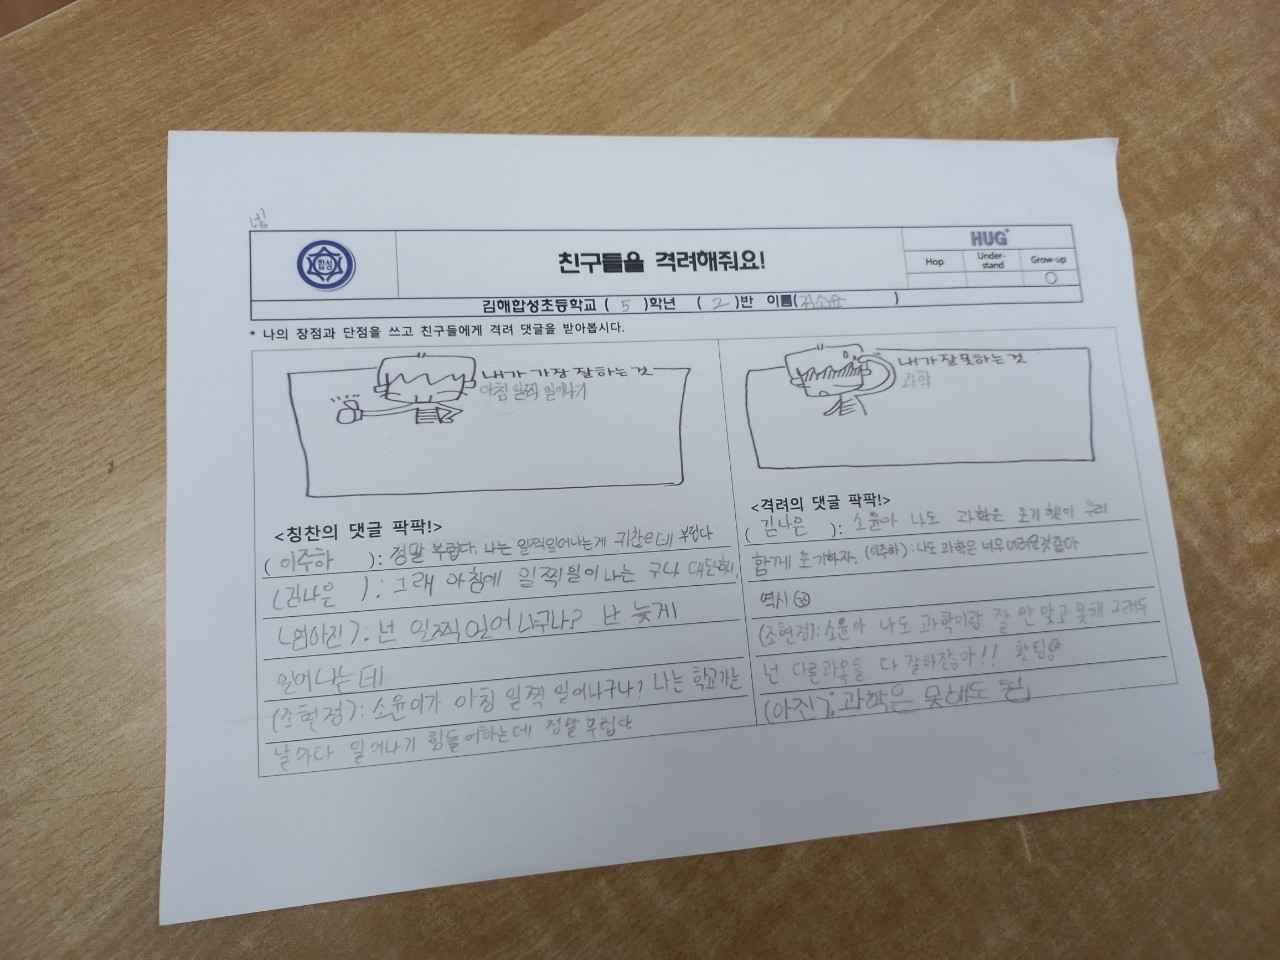 넵
합성
친구들을 격려해줘요!
HUG+
Hop
Under-stand
Grow-up
○
김해합성초등학교 ( 5 )학년 ( 2 )반 이름(김소윤 )
* 나의 장점과 단점을 쓰고 친구들에게 격려 댓글을 받아봅시다.
내가 가장 잘하는 것
아침 일찍 일어나기
<칭찬의 댓글 팍팍!>
(이주하 ): 정말 부럽다. 나는 일찍일어나는게 귀찮은데 부럽다
(김나은 ): 그래 아침에 일찍 일어나는 구나 대단해,
(염아진). 넌 일찍 일어나구나? 난 늦게
일어나는데
(조현정): 소윤이가 아침 일찍 일어나구나? 나는 학교가는
날마다 일어나기 힘들어하는데 정말 부럽다
내가 잘 못하는 것
과학
<격려의 댓글 팍팍!>
(김나은 ): 소윤아 나도 과학은 포기했어 우리
함께 포기하자. (이주하): 나도 과학은 너무 어려운것같아
역시
(조현정): 소윤아 나도 과학이랑 잘 안 맞고 못해 그래두
넌 다른과목들 다 잘하잖아!! 홧팅
(아진): 과학은 못해도 됨